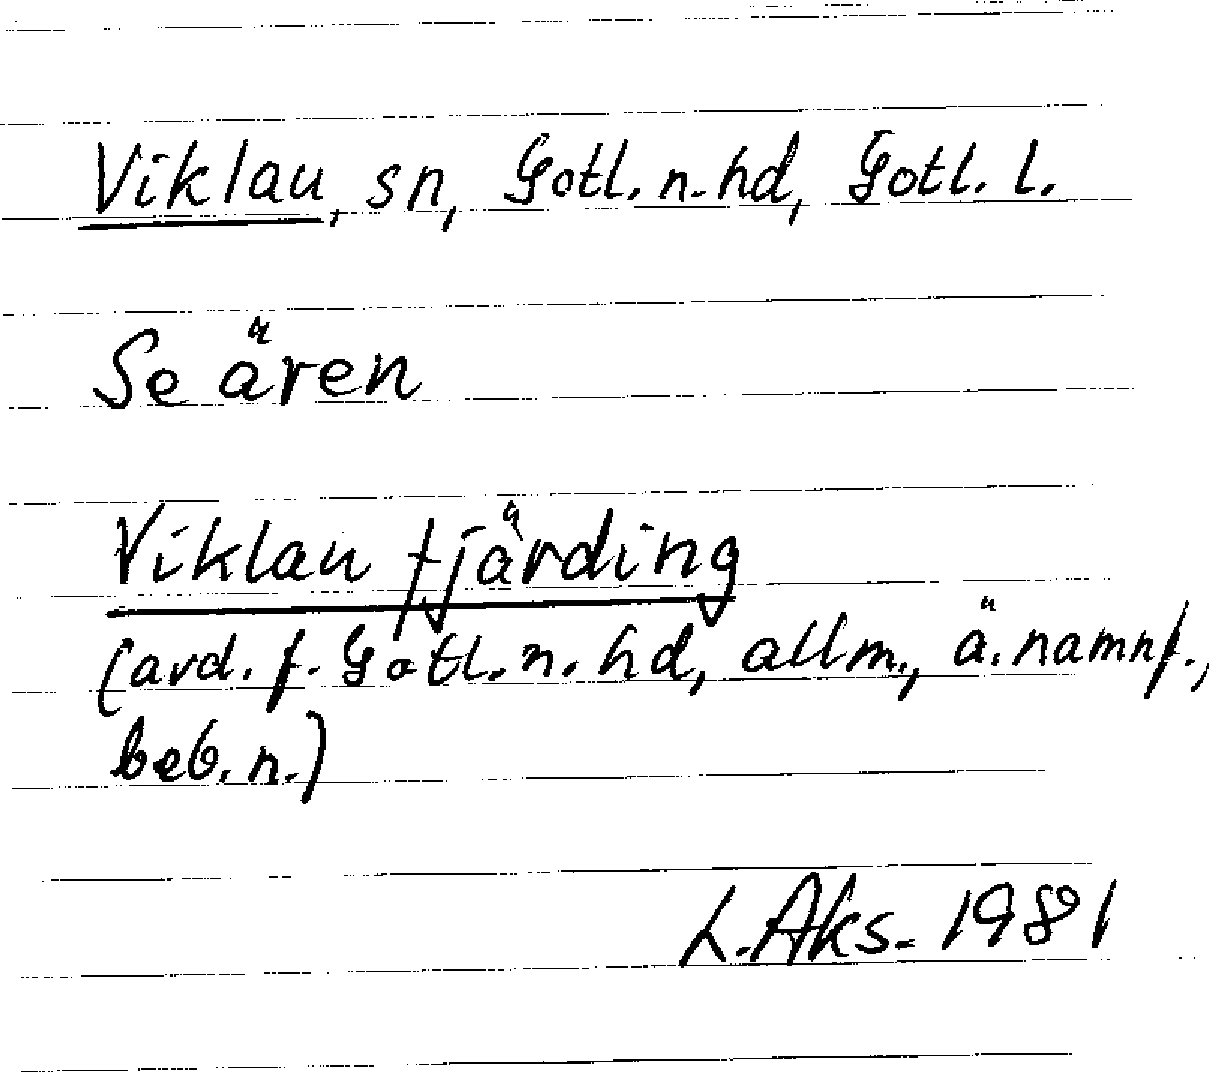 Viklau, sn, Gotl. n. hd, Gotl. l.
Se ären
Viklau fjärding
(avd. f. Gotl. n. hd, allm., ä. namnf.,
beb. n.)
L. Aks. 1981